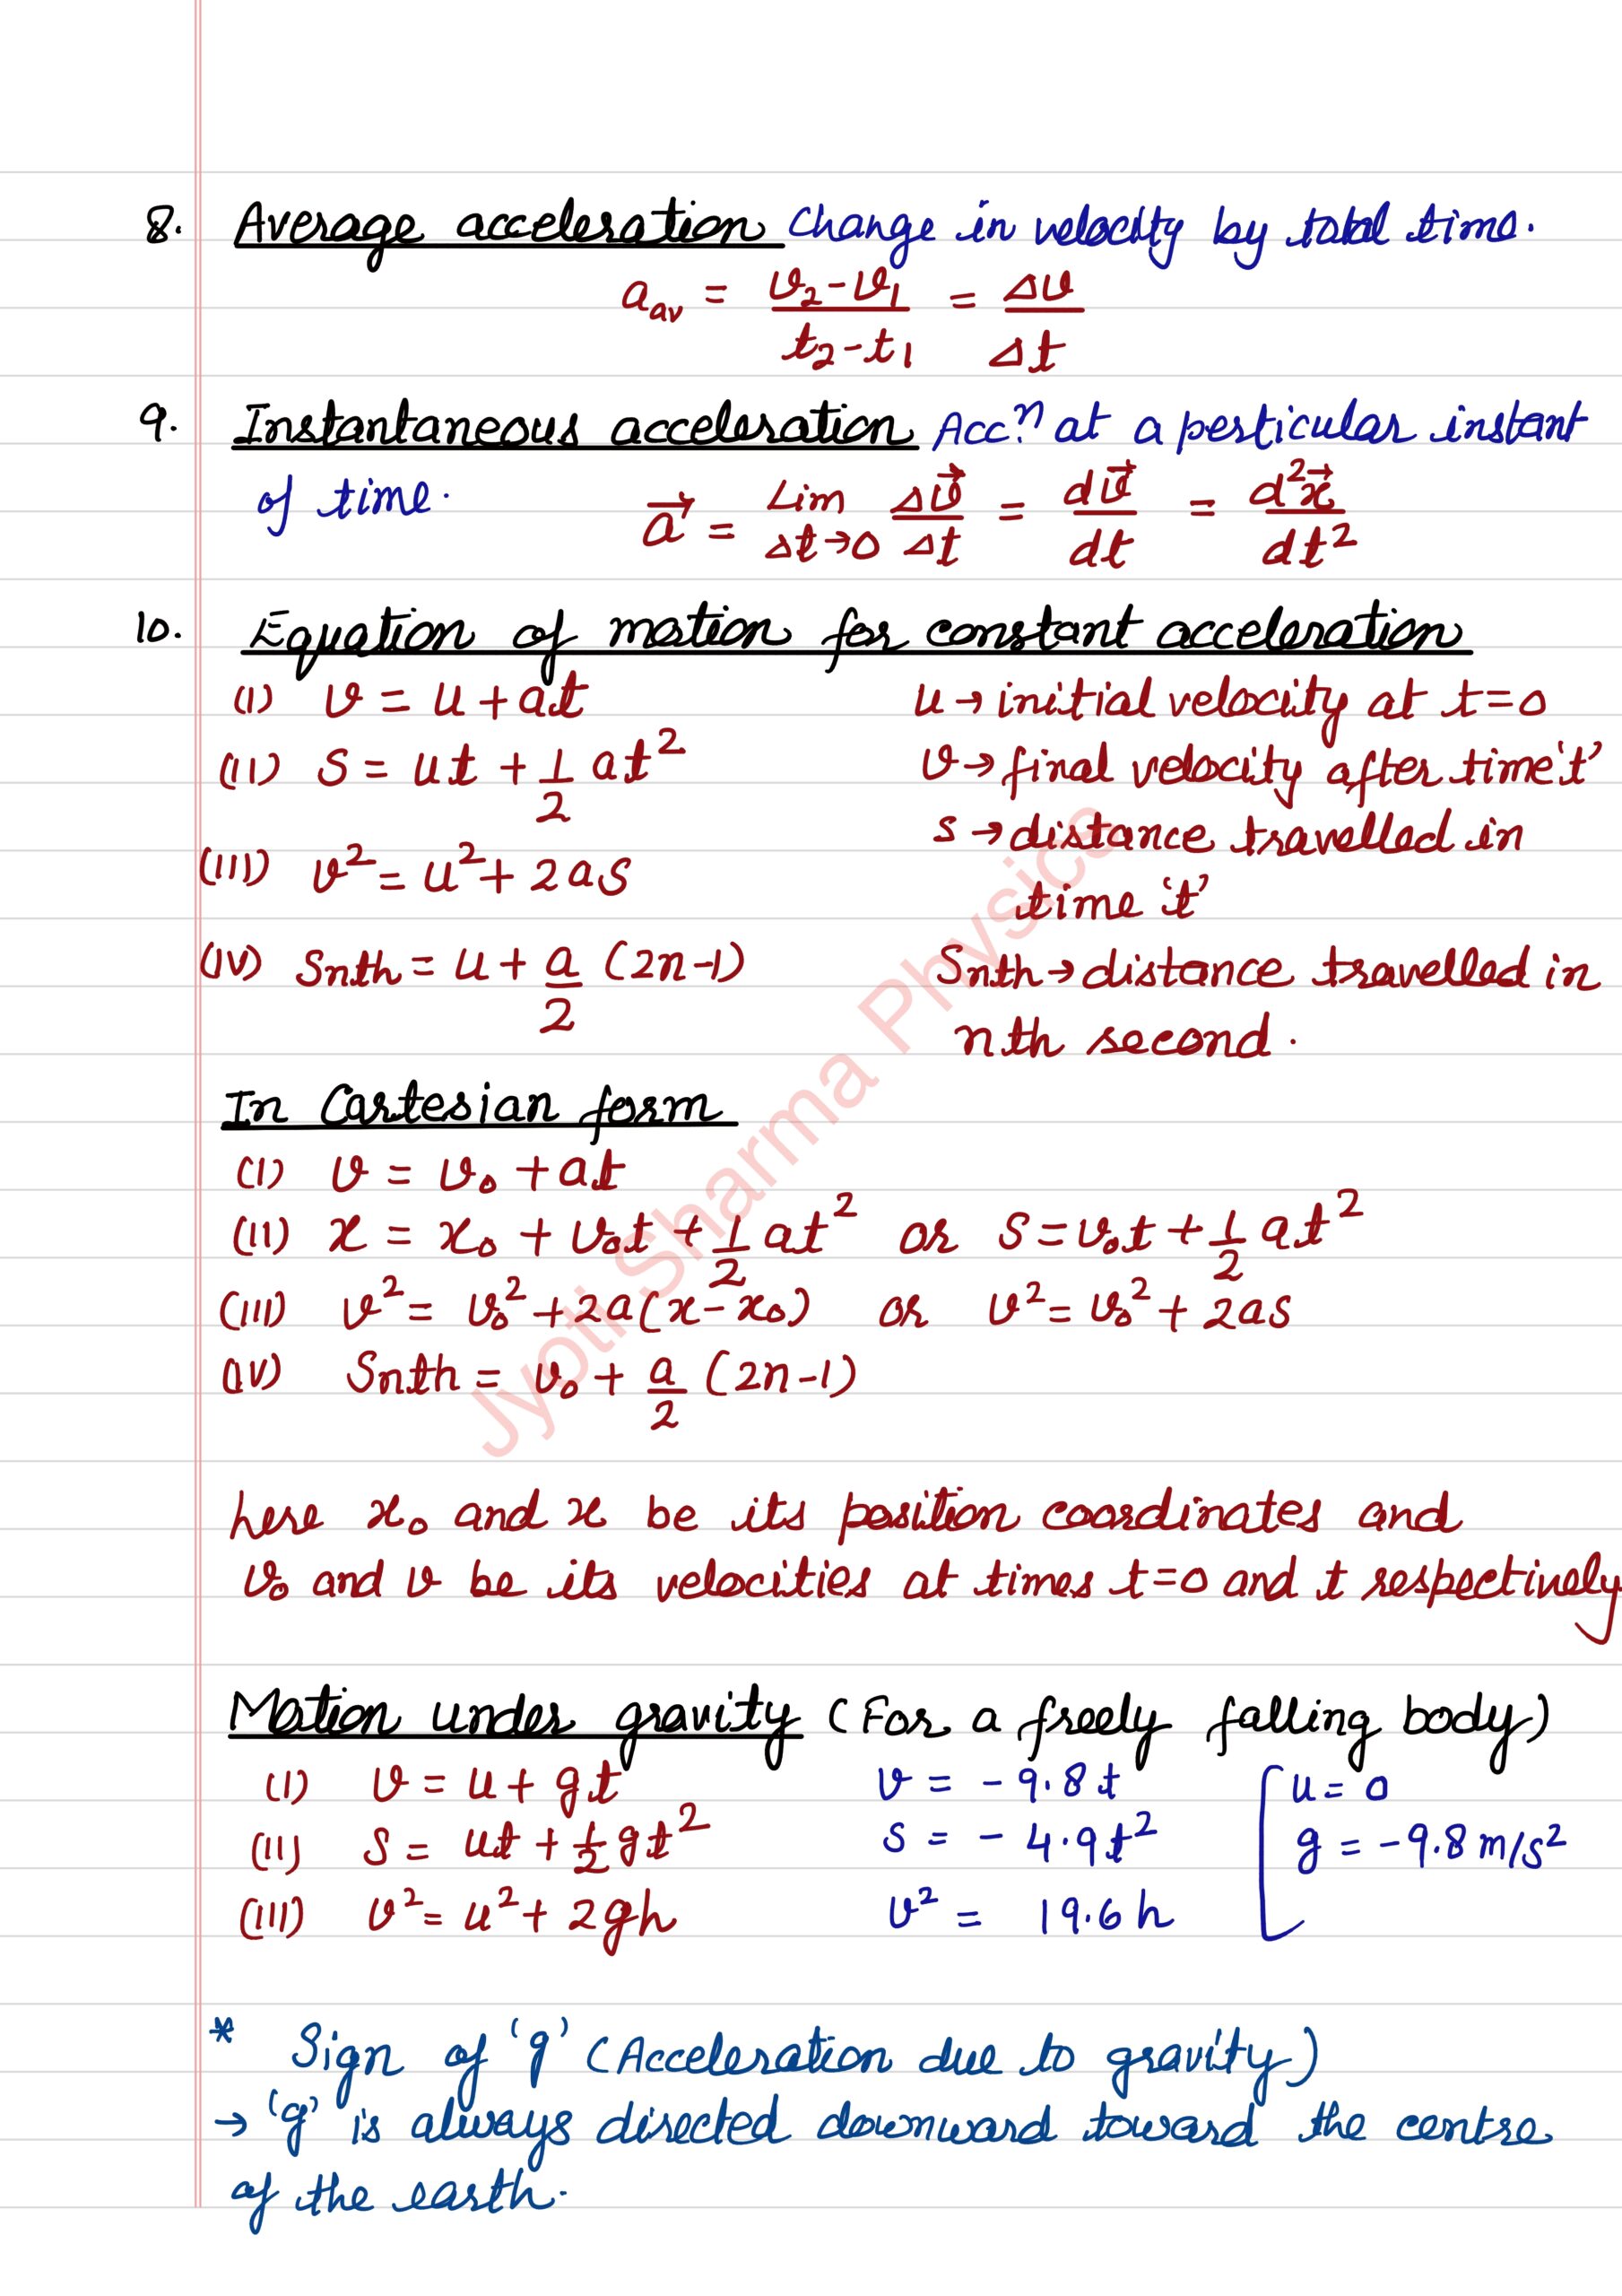 8. Average acceleration Change in velocity by total time.
a_av = (v₂-v₁)/(t₂-t₁) = Δv/Δt
9. Instantaneous acceleration Accⁿ at a perticular instant
of time. a⃗ = Lim Δt→0 Δv⃗/Δt = dv⃗/dt = d²x⃗/dt²
10. Equation of motion for constant acceleration
(I) v = u + at u → initial velocity at t=0
(II) S = ut + 1/2 at² v → final velocity after time 't'
s → distance travelled in
(III) v² = u² + 2as
time 't'
(IV) Snth = u + a/2 (2n-1) Snth → distance travelled in
nth second.
In Cartesian form
(I) v = v₀ + at
(II) x = x₀ + v₀t + 1/2 at² or S = v₀t + 1/2 at²
(III) v² = v₀² + 2a(x-x₀) or v² = v₀² + 2as
(IV) Snth = v₀ + a/2 (2n-1)
here x₀ and x be its position coordinates and
v₀ and v be its velocities at times t=0 and t respectively
Motion under gravity (For a freely falling body)
(I) v = u + gt v = -9.8t [u = 0
(II) S = ut + 1/2 gt² s = -4.9t² g = -9.8 m/s²
(III) v² = u² + 2gh v² = 19.6h
* Sign of 'g' (Acceleration due to gravity)
→ 'g' is always directed downward toward the centre
of the earth.
Jyoti Sharma Physics